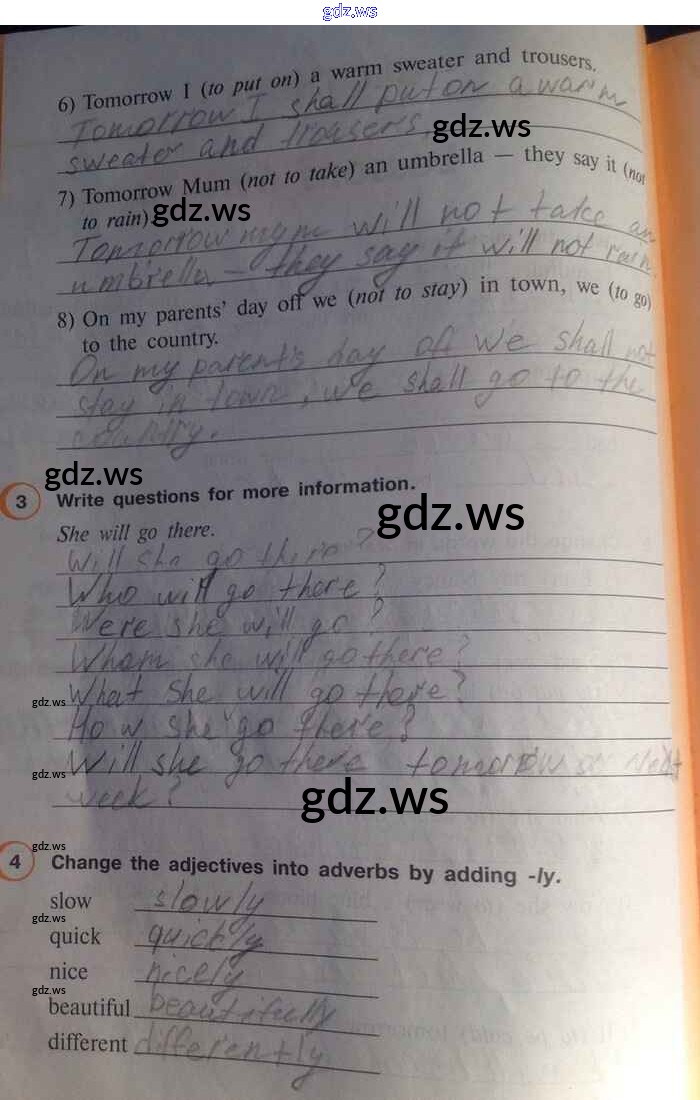 gdz.ws
6) Tomorrow I (to put on) a warm sweater and trousers.
Tomorrow I shall put on a warm
sweater and trousers.
gdz.ws
7) Tomorrow Mum (not to take) an umbrella — they say it (not
to rain).
gdz.ws
Tomorrow mym will not take an
umbrella – they say it will not rain.
8) On my parents' day off we (not to stay) in town, we (to go)
to the country.
On my parent's day off we shall not
stay in town, we shall go to the
country.
gdz.ws
3 Write questions for more information.
gdz.ws
She will go there.
Will she go there?
Who will go there?
Were she will go?
Wham she will go there?
What she will go there?
gdz.ws
How she go there?
Will she go there tomorrow or next
gdz.ws
week?
gdz.ws
gdz.ws
4 Change the adjectives into adverbs by adding -ly.
slow slowly
gdz.ws
quick quickly
nice nicely
gdz.ws
beautiful beautifully
different differently